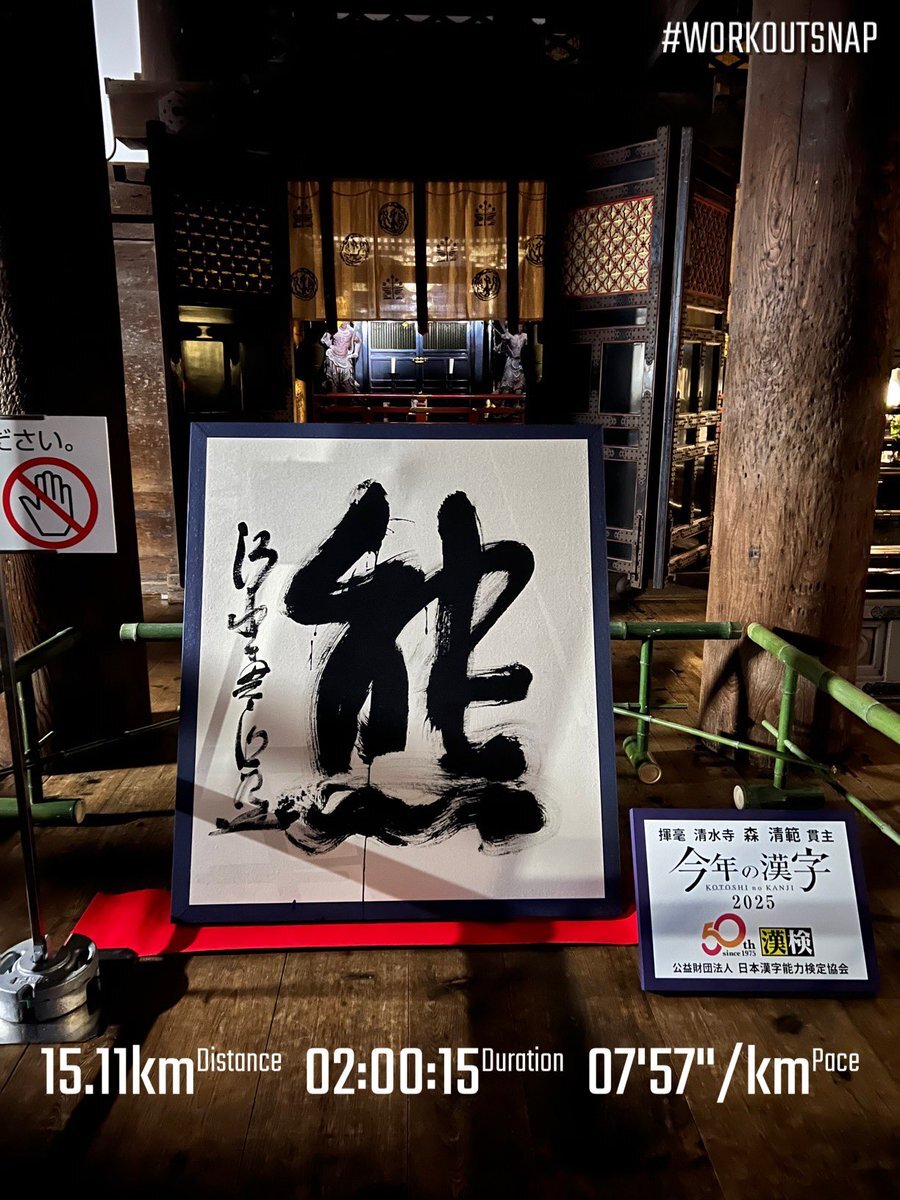 #WORKOUTSNAP
ださい。
熊
揮毫 清水寺 森 清範 貫主
今年の漢字
KOTOSHI no KANJI
2025
50th since 1975 漢検
公益財団法人 日本漢字能力検定協会
15.11km Distance 02:00:15 Duration 07'57"/km Pace